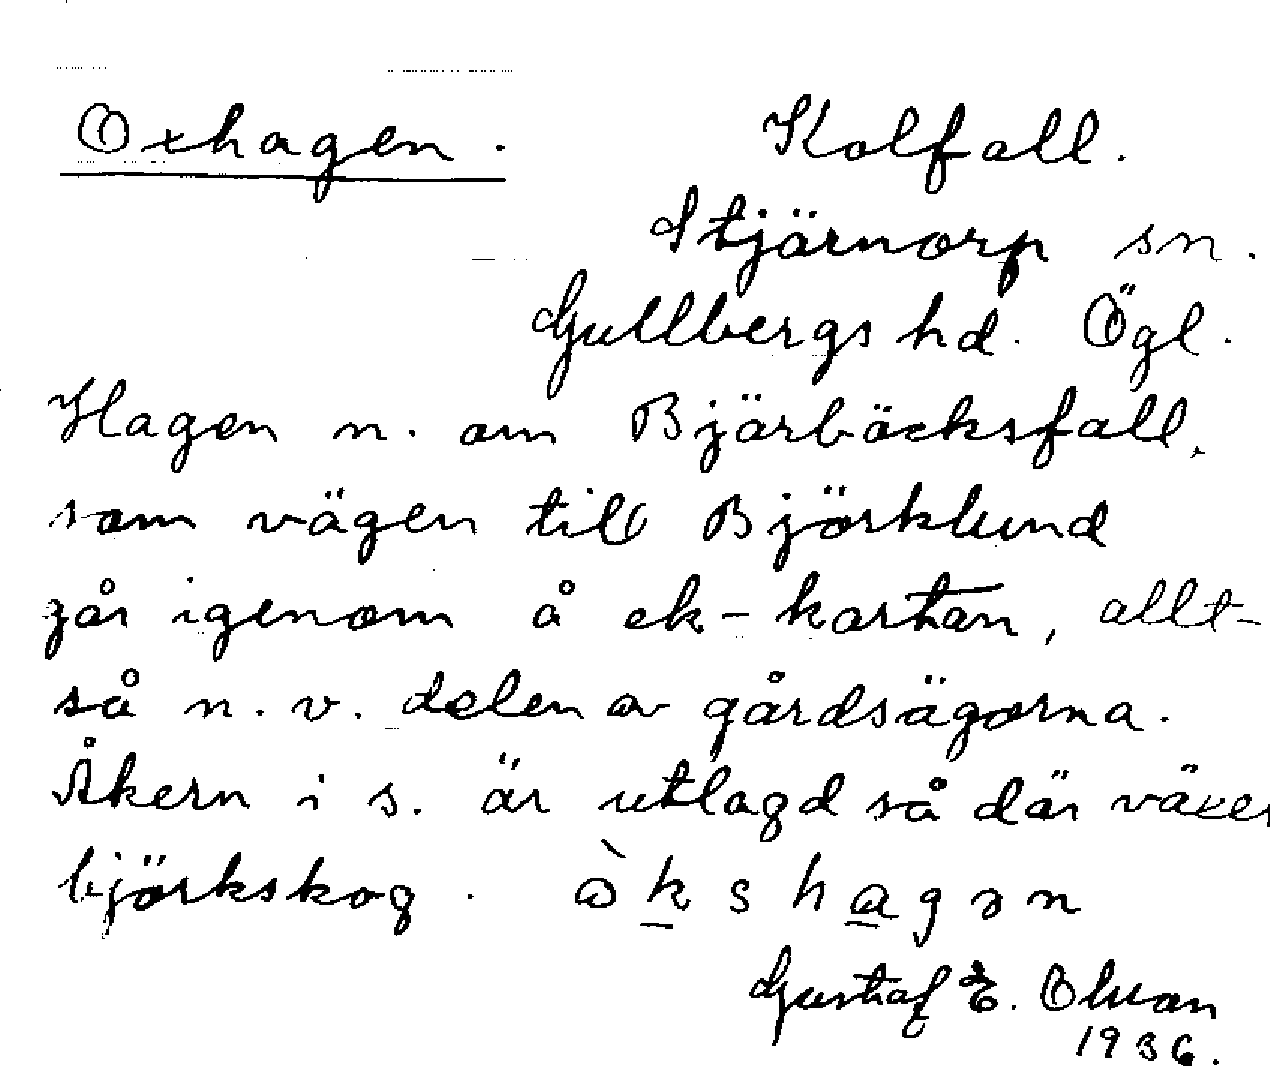 Oxhagen. Kolfall.
Stjärnorp sn.
Gullbergs hd. Ögl.
Hagen n. om Bjärbäcksfall,
som vägen till Björklund
går igenom å ek-kartan, allt-
så n.v. delen av gårdsägorna.
Åkern i s. är utlagd så där växer
björkskog. òkshagən
Gustaf E. Olson
1936.